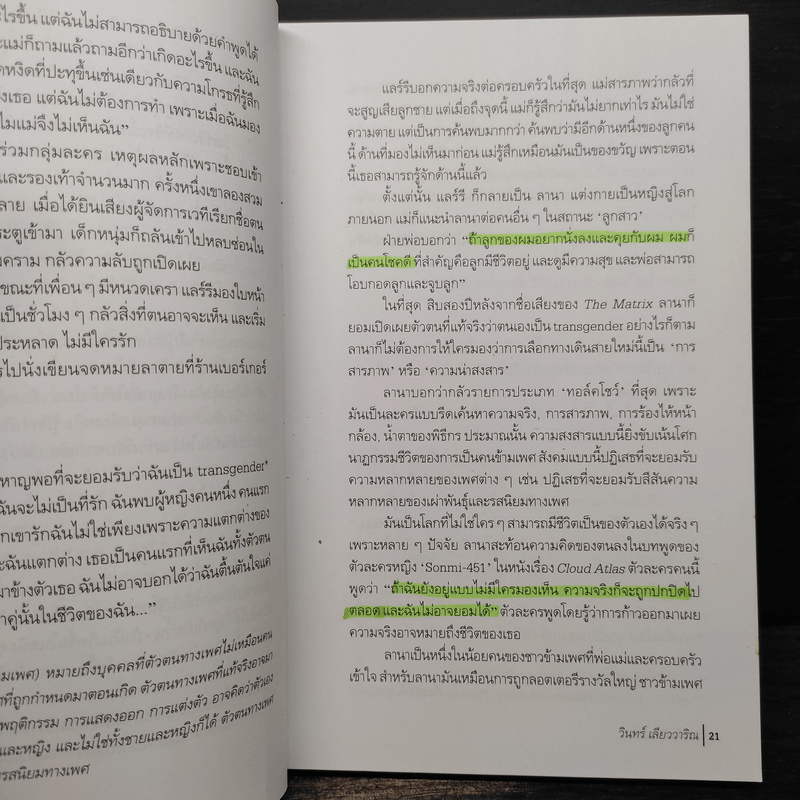 ะไรขึ้น แต่ฉันไม่สามารถอธิบายด้วยคำพูดได้
ะแม่ก็ถามแล้วถามอีกว่าเกิดอะไรขึ้น และฉัน
หงิดที่ปะทุขึ้นเช่นเดียวกับความโกรธที่รู้สึก
งเธอ แต่ฉันไม่ต้องการทำ เพราะเมื่อฉันมอง
ไมแม่จึงไม่เห็นฉัน”
ร่วมกลุ่มละคร เหตุผลหลักเพราะชอบเข้า
และรองเท้าจำนวนมาก ครั้งหนึ่งเขาลองสวม
ลาย เมื่อได้ยินเสียงผู้จัดการเวทีเรียกชื่อตน
ระตูเข้ามา เด็กหนุ่มก็ถลันเข้าไปหลบซ่อนใน
งคราม กลัวความลับถูกเปิดเผย
ขณะที่เพื่อน ๆ มีหนวดเครา แลร์รีมองใบหน้า
เป็นชั่วโมง ๆ กลัวสิ่งที่ตนอาจจะเห็น และเริ่ม
ประหลาด ไม่มีใครรัก
รไปนั่งเขียนจดหมายลาตายที่ร้านเบอร์เกอร์
หาญพอที่จะยอมรับว่าฉันเป็น transgender*
ฉันจะไม่เป็นที่รัก ฉันพบผู้หญิงคนหนึ่ง คนแรก
กเขารักฉันไม่ใช่เพียงเพราะความแตกต่างของ
ะฉันแตกต่าง เธอเป็นคนแรกที่เห็นฉันทั้งตัวตน
มาข้างตัวเธอ ฉันไม่อาจบอกได้ว่าฉันตื้นตันใจแค่
าคู่นั้นในชีวิตของฉัน...”
ามเพศ) หมายถึงบุคคลที่ตัวตนทางเพศไม่เหมือนคน
ศที่ถูกกำหนดมาตอนเกิด ตัวตนทางเพศที่แท้จริงอาจมา
พฤติกรรม การแสดงออก การแต่งตัว อาจคิดว่าตัวเอง
และหญิง และไม่ใช่ทั้งชายและหญิงก็ได้ ตัวตนทางเพศ
รสนิยมทางเพศ
แลร์รีบอกความจริงต่อครอบครัวในที่สุด แม่สารภาพว่ากลัวที่
จะสูญเสียลูกชาย แต่เมื่อถึงจุดนี้ แม่ก็รู้สึกว่ามันไม่ยากเท่าไร มันไม่ใช่
ความตาย แต่เป็นการค้นพบมากกว่า ค้นพบว่ามีอีกด้านหนึ่งของลูกคน
นี้ ด้านที่มองไม่เห็นมาก่อน แม่รู้สึกเหมือนมันเป็นของขวัญ เพราะตอน
นี้เธอสามารถรู้จักด้านนี้แล้ว
ตั้งแต่นั้น แลร์รี ก็กลายเป็น ลานา แต่งกายเป็นหญิงสู่โลก
ภายนอก แม่ก็แนะนำลานาต่อคนอื่น ๆ ในสถานะ ‘ลูกสาว’
ฝ่ายพ่อบอกว่า “ถ้าลูกของผมอยากนั่งลงและคุยกับผม ผมก็
เป็นคนโชคดี ที่สำคัญคือลูกมีชีวิตอยู่ และดูมีความสุข และพ่อสามารถ
โอบกอดลูกและจูบลูก”
ในที่สุด สิบสองปีหลังจากชื่อเสียงของ The Matrix ลานาก็
ยอมเปิดเผยตัวตนที่แท้จริงว่าตนเองเป็น transgender อย่างไรก็ตาม
ลานาก็ไม่ต้องการให้ใครมองว่าการเลือกทางเดินสายใหม่นี้เป็น ‘การ
สารภาพ’ หรือ ‘ความน่าสงสาร’
ลานาบอกว่ากลัวรายการประเภท ‘ทอล์คโชว์’ ที่สุด เพราะ
มันเป็นละครแบบรีดเค้นหาความจริง, การสารภาพ, การร้องไห้หน้า
กล้อง, น้ำตาของพิธีกร ประมาณนั้น ความสงสารแบบนี้ยิ่งขับเน้นโศก
นาฏกรรมชีวิตของการเป็นคนข้ามเพศ สังคมแบบนี้ปฏิเสธที่จะยอมรับ
ความหลากหลายของเพศต่าง ๆ เช่น ปฏิเสธที่จะยอมรับสีสันความ
หลากหลายของเผ่าพันธุ์และรสนิยมทางเพศ
มันเป็นโลกที่ไม่ใช่ใคร ๆ สามารถมีชีวิตเป็นของตัวเองได้จริง ๆ
เพราะหลาย ๆ ปัจจัย ลานาสะท้อนความคิดของตนลงในบทพูดของ
ตัวละครหญิง ‘Sonmi-451’ ในหนังเรื่อง Cloud Atlas ตัวละครคนนี้
พูดว่า “ถ้าฉันยังอยู่แบบไม่มีใครมองเห็น ความจริงก็จะถูกปกปิดไป
ตลอด และฉันไม่อาจยอมได้” ตัวละครพูดโดยรู้ว่าการก้าวออกมาเผย
ความจริงอาจหมายถึงชีวิตของเธอ
ลานาเป็นหนึ่งในน้อยคนของชาวข้ามเพศที่พ่อแม่และครอบครัว
เข้าใจ สำหรับลานามันเหมือนการถูกลอตเตอรีรางวัลใหญ่ ชาวข้ามเพศ
วินทร์ เลียววาริณ 21